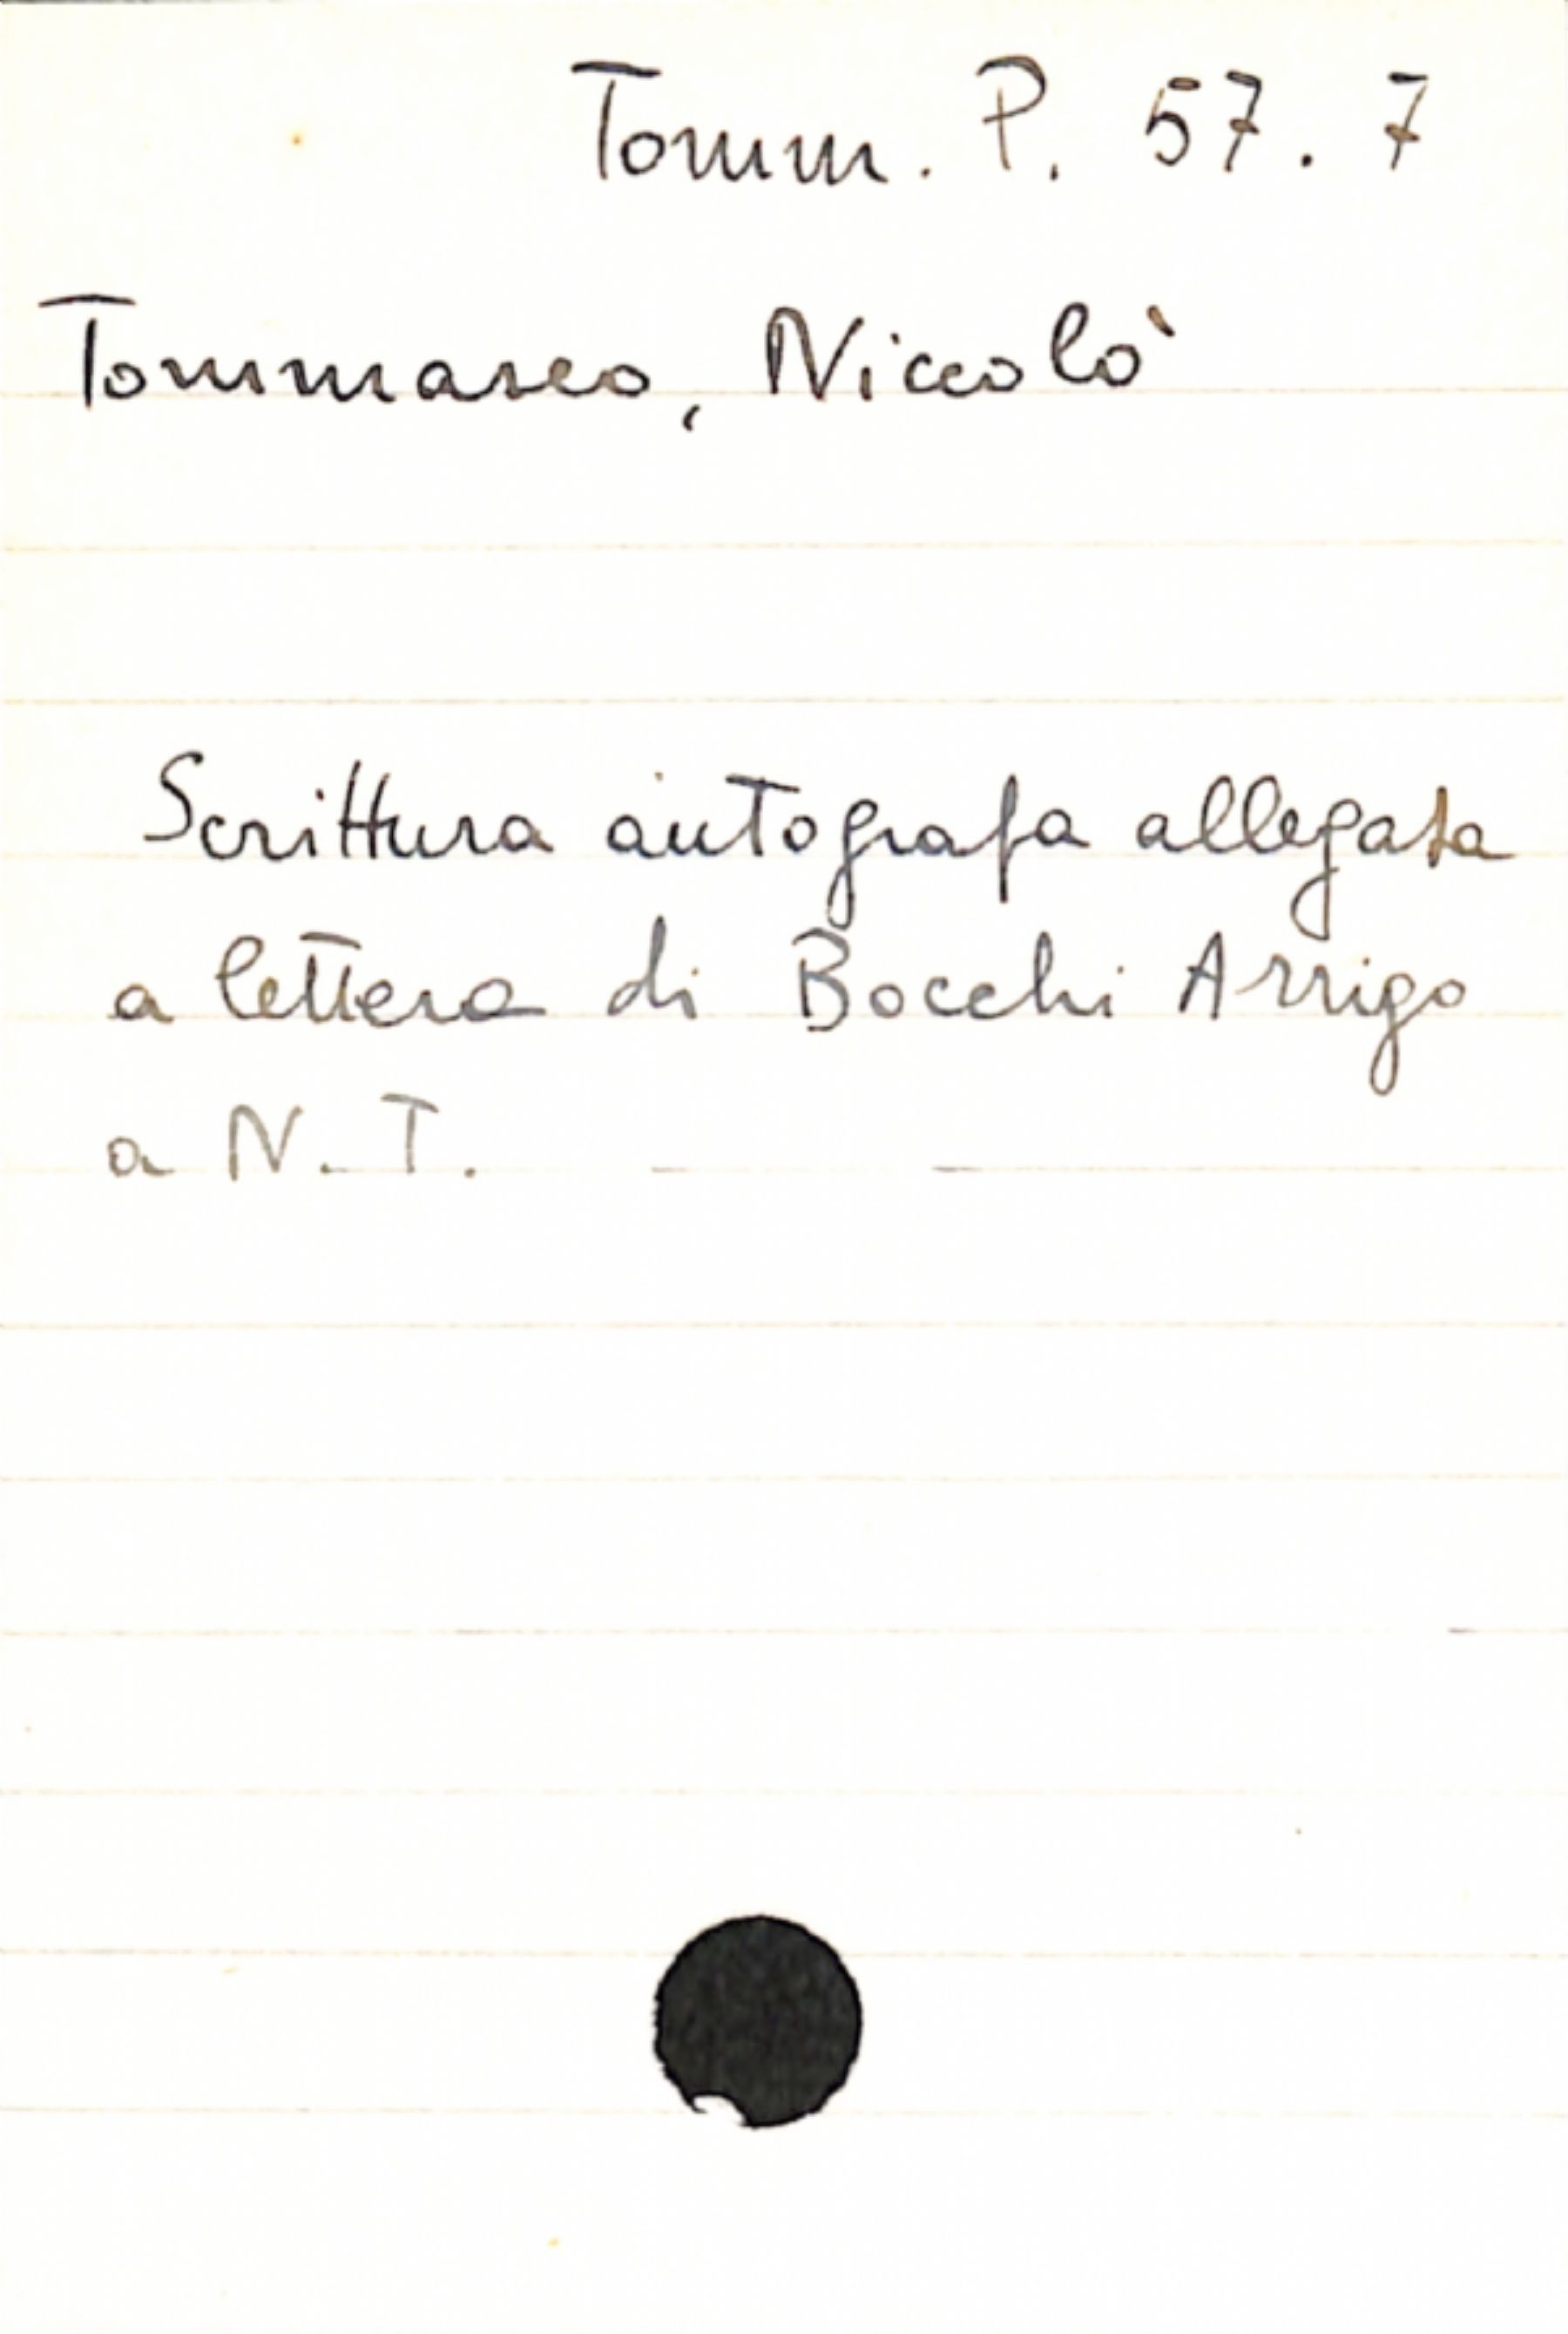 Tomm. P. 57. 7
Tommaseo, Niccolò
Scrittura autografa allegata
a lettera di Bocchi Arrigo
a N. T.